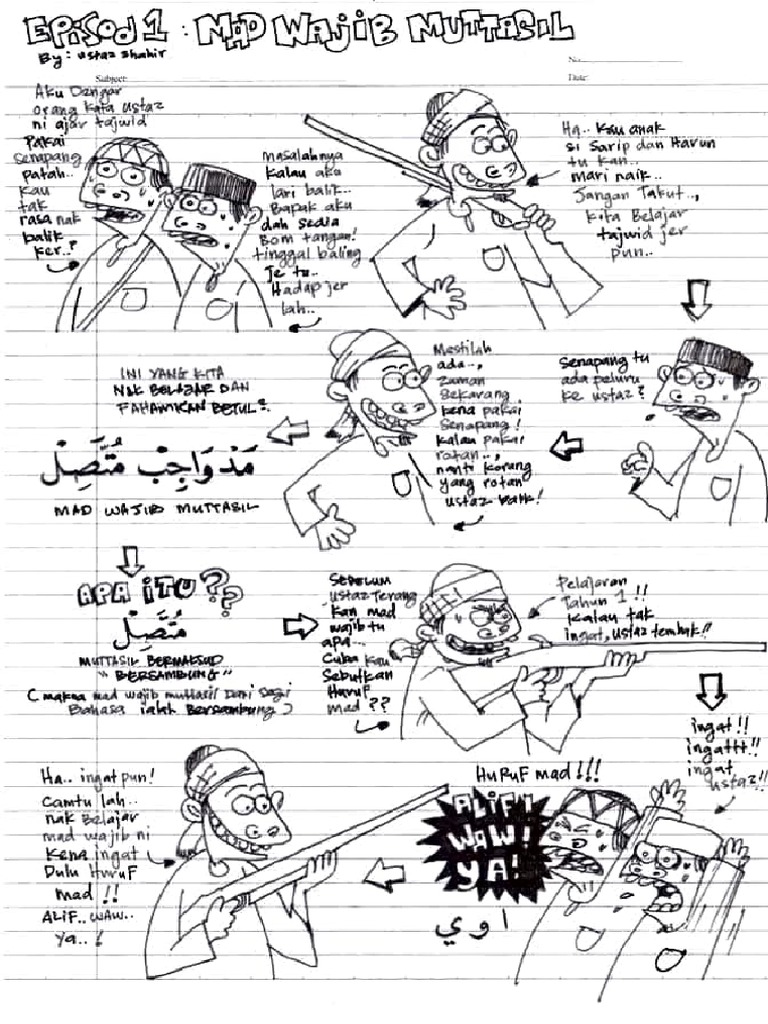 Episod 1 : Mad Wajib Muttasil
By : ustaz shahir
No.
Subject:
Date:
Aku Dengar
orang kata ustaz
ni ajar tajwid
Pakai
senapang
patah..
kau
tak
rasa nak
balik
ker..?
masalahnya
kalau aku
lari balik..
Bapak aku
dah sedia
Bom tangan!
tinggal baling
je tu..
Hadap jer
lah..
Ha.. kau anak
si Sarip dan Harun
tu kan..
mari naik..
Jangan Takut..,
kita Belajar
tajwid jer
pun..
senapang tu
ada peluru
ke ustaz?
Mestilah
ada..,
zaman
sekarang
kena pakai
senapang!
kalau pakai
rotan..,
nanti korang
yang rotan
ustaz balik!
INI YANG KITA
NAK BELAJAR DAN
FAHAMKAN BETUL².
مَدْ وَاجِبْ مُتَّصِلْ
MAD WAJIB MUTTASIL
APA ITU??
مُتَّصِلْ
MUTTASIL BERMAKSUD
" BERSAMBUNG "
( makna mad wajib muttasil Dari segi
Bahasa ialah Bersambung )
SEBELUM
ustaz terang
kan mad
wajib tu
apa...
Cuba kau
Sebutkan
Huruf
mad ??
Pelajaran
Tahun 1 !!
kalau tak
ingat, ustaz tembak!!
ingat !!
ingattt!!
ingat
ustaz!!
HuRuF mad!!!
ALIF!
WAW!
YA!
ا و ي
Ha.. ingat pun!
Camtu lah..
nak Belajar
mad wajib ni
kena ingat
Dulu HuruF
mad !!
ALIF.. WAW..
Ya.. !